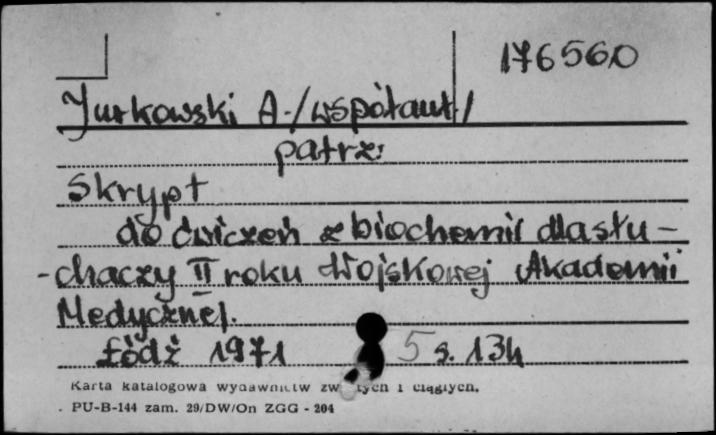 176560
Jurkowski A. /współaut./
patrz:
Skrypt
do ćwiczeń z biochemii dla słu-
-chaczy II roku Wojskowej Akademii
Medycznej.
Łódź 1971 5 s. 134
Karta katalogowa wydawnictw zwartych i ciągłych.
PU-B-144 zam. 29/DW/On ZGG - 204